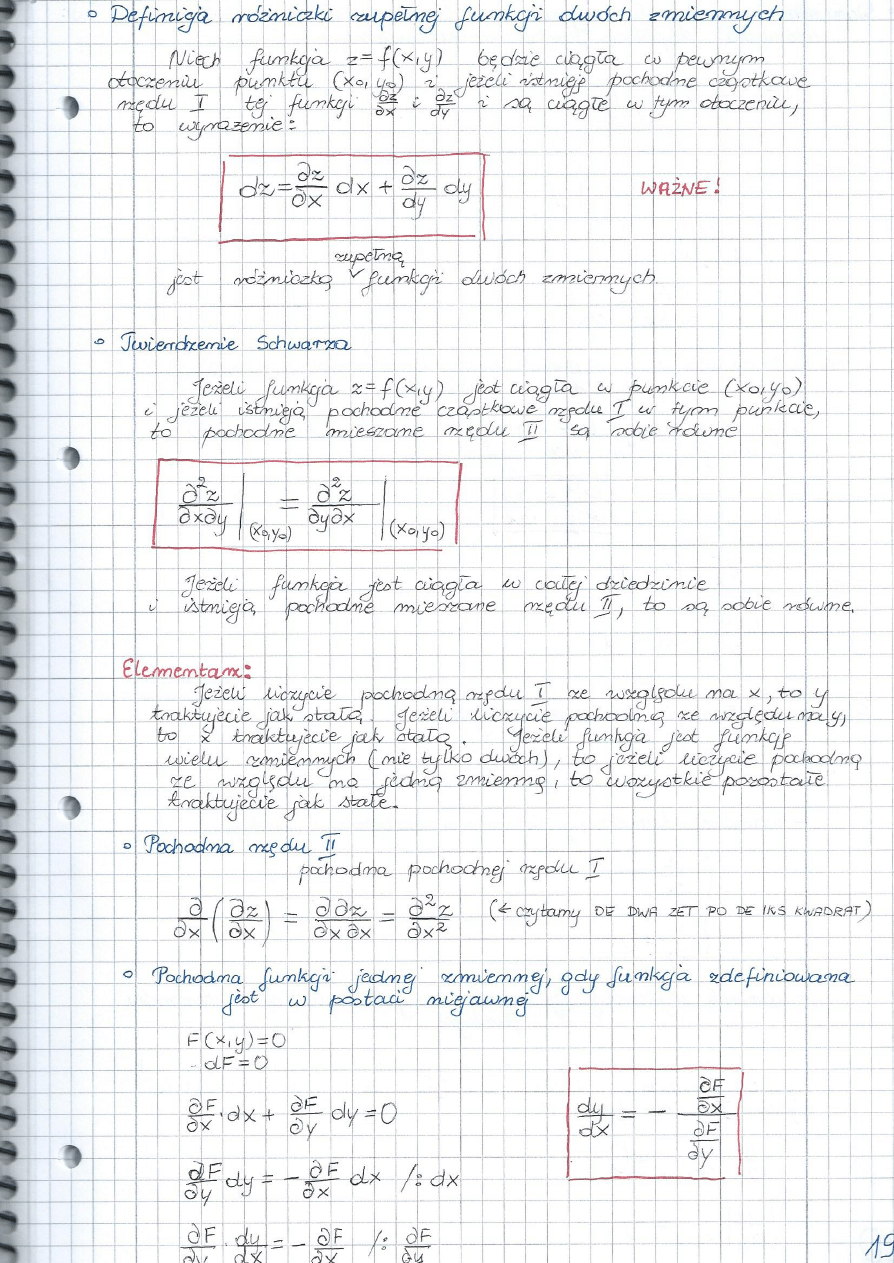 Definicja różniczki zupełnej funkcji dwóch zmiennych
Niech funkcja z=f(x,y) będzie ciągła w pewnym
otoczeniu punktu (x₀,y₀) i jeżeli istnieją pochodne cząstkowe
rzędu I tej funkcji ∂z/∂x i ∂z/∂y i są ciągłe w tym otoczeniu,
to wyrażenie:
dz = ∂z/∂x dx + ∂z/dy dy
WAŻNE!
zupełną
jest różniczką ✓ funkcji dwóch zmiennych.
Twierdzenie Schwarza
Jeżeli funkcja z=f(x,y) jest ciągła w punkcie (x₀,y₀)
i jeżeli istnieją pochodne cząstkowe rzędu I w tym punkcie,
to pochodne mieszane rzędu II są sobie równe
∂²z/∂x∂y |(x₀,y₀) = ∂²z/∂y∂x |(x₀,y₀)
Jeżeli funkcja jest ciągła w całej dziedzinie
i istnieją pochodne mieszane rzędu II, to są sobie równe.
Elementarz:
Jeżeli liczycie pochodną rzędu I ze względu na x, to y
traktujecie jak stałą. Jeżeli liczycie pochodną ze względu na y,
to x traktujecie jak stałą. Jeżeli funkcja jest funkcją
wielu zmiennych (nie tylko dwóch), to jeżeli liczycie pochodną
ze względu na jedną zmienną, to wszystkie pozostałe
traktujecie jak stałe.
Pochodna rzędu II
pochodna pochodnej rzędu I
∂/∂x (∂z/∂x) = ∂∂z/∂x∂x = ∂²z/∂x² (← czytamy DE DWA ZET PO DE IKS KWADRAT)
Pochodna funkcji jednej zmiennej, gdy funkcja zdefiniowana
jest w postaci niejawnej
F(x,y)=0
dF=0
∂F/∂x · dx + ∂F/∂y dy = 0
dy/dx = - ∂F/∂x / ∂F/∂y
∂F/∂y dy = - ∂F/∂x dx /: dx
∂F/∂y · dy/dx = - ∂F/∂x /: ∂F/∂y
19